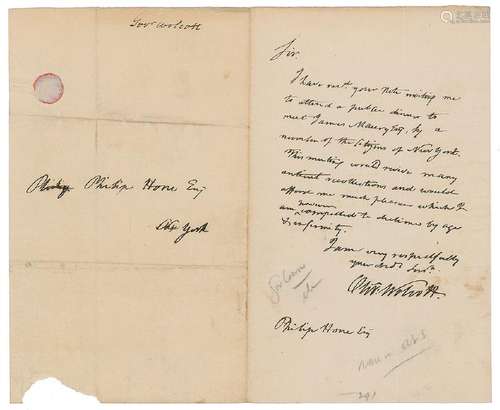 Govr. Wolcott
Philip Hone Esq
New York
Sir,
I have recd. your Note inviting me
to attend a public dinner to
meet James Maury Esq. by a
number of the Citizens of New York.
This meeting would revive many
antient recollections and would
afford me much pleasure which I
am however compelled to decline by age
& infirmity.
I am very respectfully
your Obdt Servt.
Oliv. Wolcott.
Philip Hone Esq